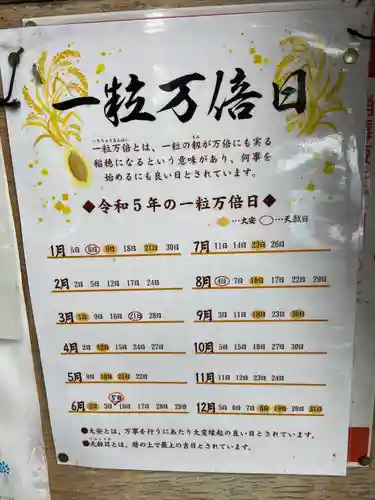 一粒万倍日
いちりゅうまんばい
一粒万倍とは、一粒の籾が万倍にも実る
稲穂になるという意味があり、何事を
始めるにも良い日とされています。
◆令和5年の一粒万倍日◆
…大安 …天赦日
1月 5日 6日 9日 18日 21日 30日
2月 2日 5日 12日 17日 24日
3月 1日 9日 16日 21日 28日
4月 2日 12日 15日 24日 27日
5月 9日 10日 21日 22日
5日
6月 2日 3日 16日 17日 28日 29日
7月 11日 14日 23日 26日
8月 4日 7日 10日 17日 22日 29日
9月 3日 11日 18日 23日 30日
10月 5日 15日 18日 27日 30日
11月 11日 12日 23日 24日
12月 5日 6日 7日 8日 19日 20日 31日
●大安とは、万事を行うにあたり大変縁起の良い日とされています。
●天赦日とは、暦の上で最上の吉日とされています。